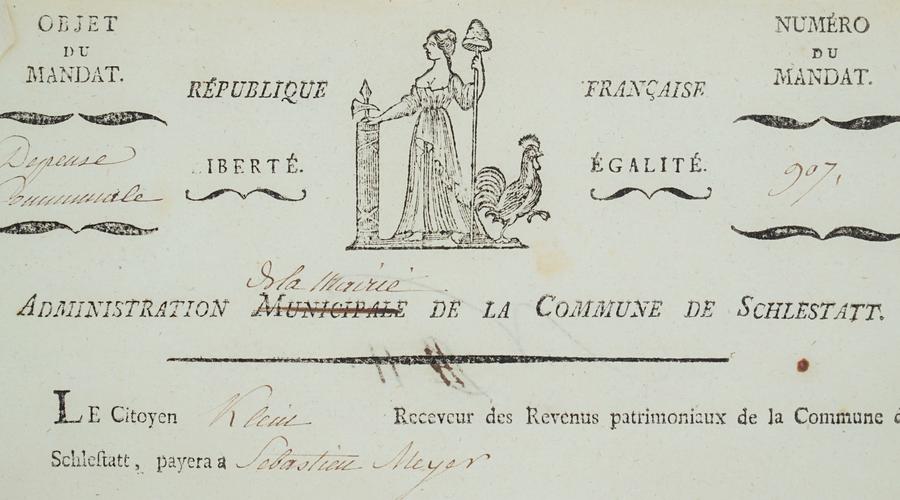 OBJET
DU
MANDAT.
Depense
Communale
RÉPUBLIQUE FRANÇAISE
LIBERTÉ. ÉGALITÉ.
NUMÉRO
DU
MANDAT.
907.
de la Mairie
ADMINISTRATION MUNICIPALE DE LA COMMUNE DE SCHLESTATT.
LE Citoyen Klein Receveur des Revenus patrimoniaux de la Commune d
Schleſtatt, payera a Sebastien Meyer